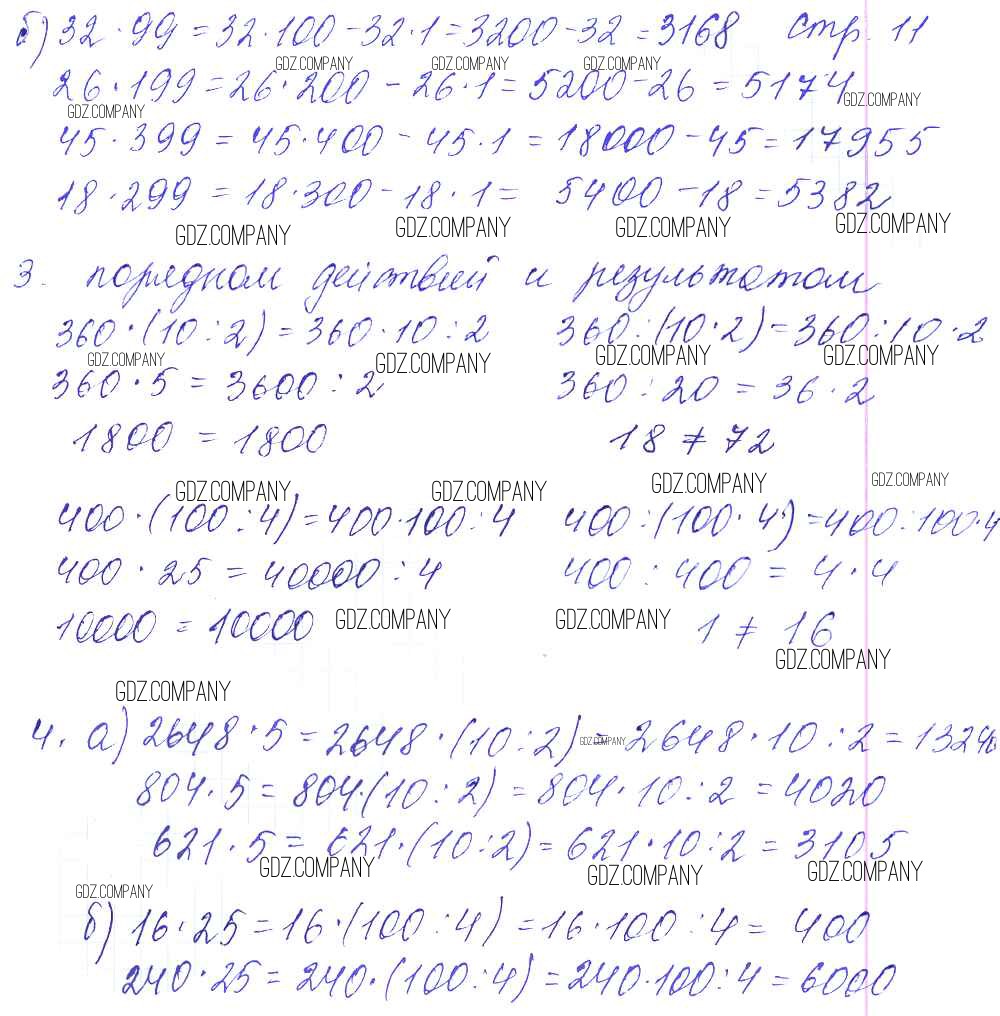 б) 32 · 99 = 32 · 100 - 32 · 1 = 3200 - 32 = 3168 стр. 11
GDZ.COMPANY GDZ.COMPANY GDZ.COMPANY
26 · 199 = 26 · 200 - 26 · 1 = 5200 - 26 = 5174
GDZ.COMPANY GDZ.COMPANY
45 · 399 = 45 · 400 - 45 · 1 = 18000 - 45 = 17955
18 · 299 = 18 · 300 - 18 · 1 = 5400 - 18 = 5382
GDZ.COMPANY GDZ.COMPANY GDZ.COMPANY GDZ.COMPANY
3. порядком действий и результатом
360 · (10 : 2) = 360 · 10 : 2 360 : (10 · 2) = 360 : 10 · 2
GDZ.COMPANY GDZ.COMPANY GDZ.COMPANY GDZ.COMPANY
360 · 5 = 3600 : 2 360 : 20 = 36 · 2
1800 = 1800 18 ≠ 72
GDZ.COMPANY GDZ.COMPANY GDZ.COMPANY GDZ.COMPANY
400 · (100 : 4) = 400 · 100 : 4 400 : (100 · 4) = 400 : 100 · 4
400 · 25 = 40000 : 4 400 : 400 = 4 · 4
10000 = 10000 GDZ.COMPANY GDZ.COMPANY 1 ≠ 16
GDZ.COMPANY
GDZ.COMPANY
4. а) 2648 · 5 = 2648 · (10 : 2) = 2648 · 10 : 2 = 13240
GDZ.COMPANY
804 · 5 = 804 · (10 : 2) = 804 · 10 : 2 = 4020
621 · 5 = 621 · (10 : 2) = 621 · 10 : 2 = 3105
GDZ.COMPANY GDZ.COMPANY GDZ.COMPANY
GDZ.COMPANY
б) 16 · 25 = 16 · (100 : 4) = 16 · 100 : 4 = 400
240 · 25 = 240 · (100 : 4) = 240 · 100 : 4 = 6000